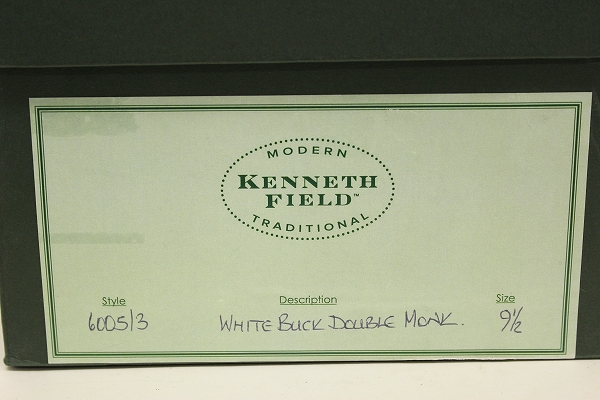 MODERN
KENNETH
FIELD™
TRADITIONAL
Style Description Size
6005/3 WHITE BUCK DOUBLE MONK. 9½